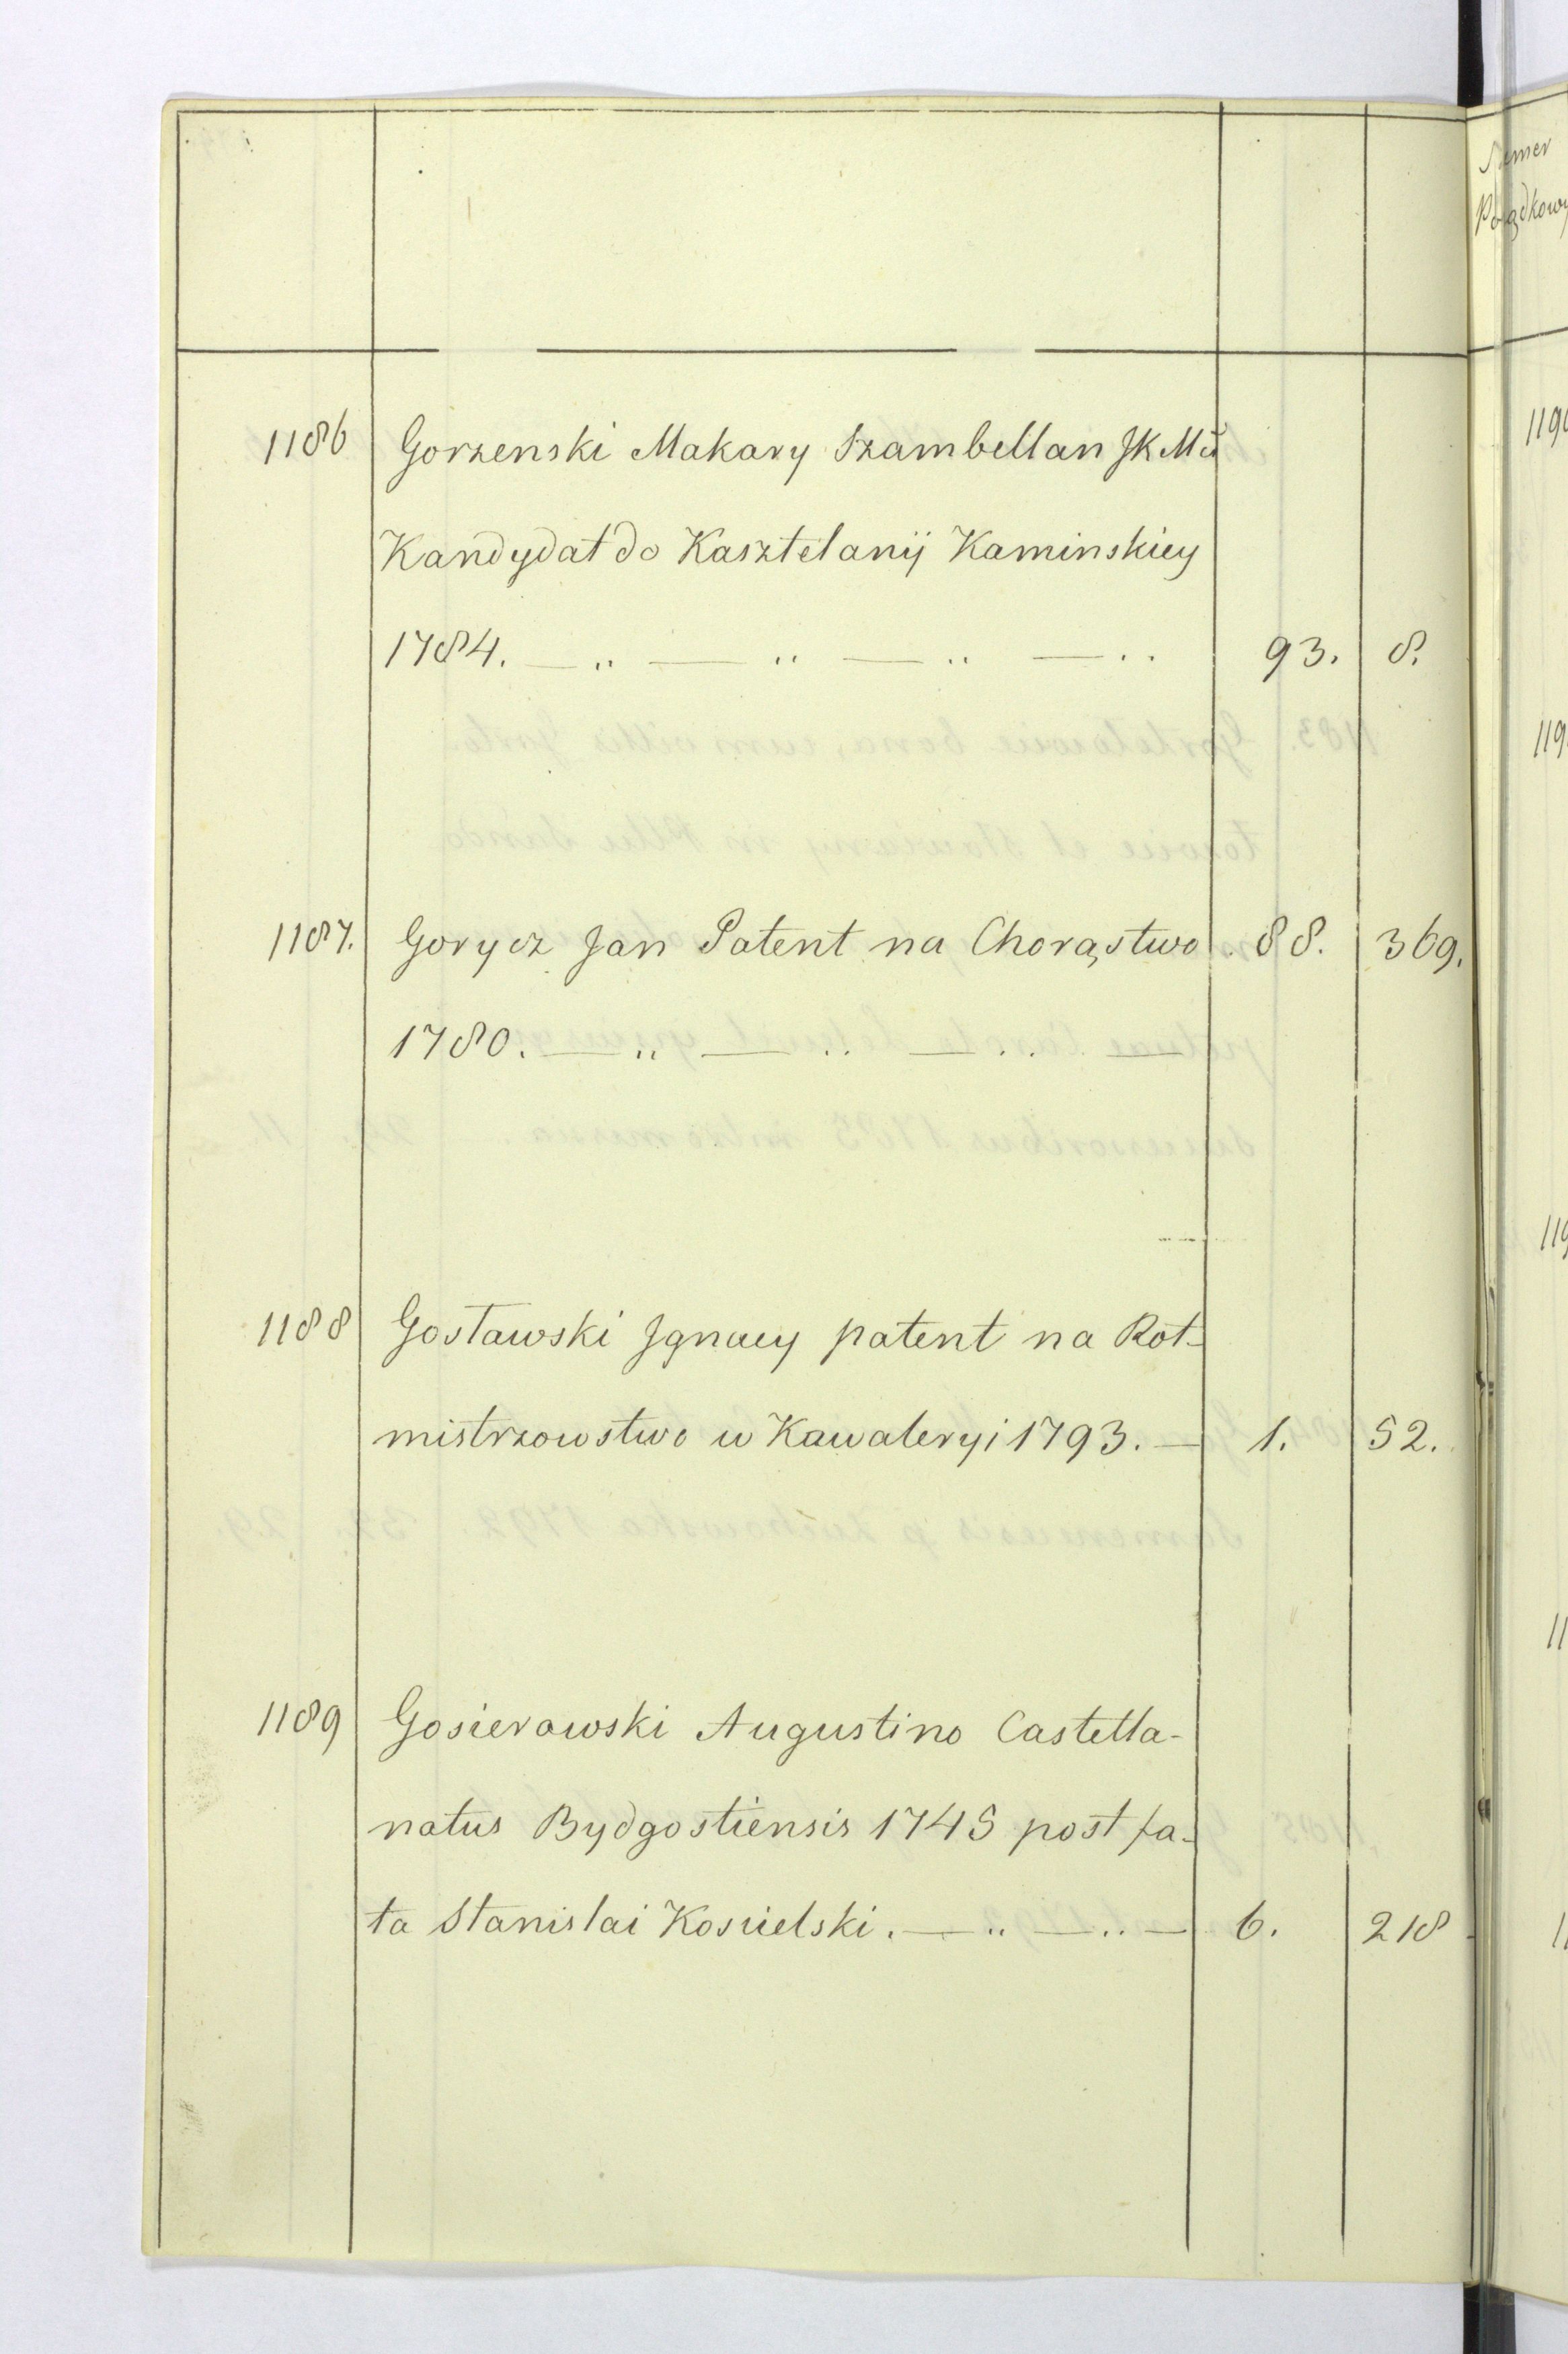 1186 Gorzenski Makary Szambellan JKMći
Kandydat do Kasztelanij Kaminskiey
1784. — „ — „ — „ — „ 93. 8.
1187. Gorycz Jan Patent na Chorąstwo 88. 369.
1780. — „ — „ — „ —
1188 Gosławski Jgnacy patent na Rot-
mistrzowstwo w Kawaleryi 1793. — 1. 52.
1189 Gosierowski Augustino Castella-
natus Bydgostiensis 1745 post fa-
ta Stanislai Kosielski. — „ — „ — 6. 218